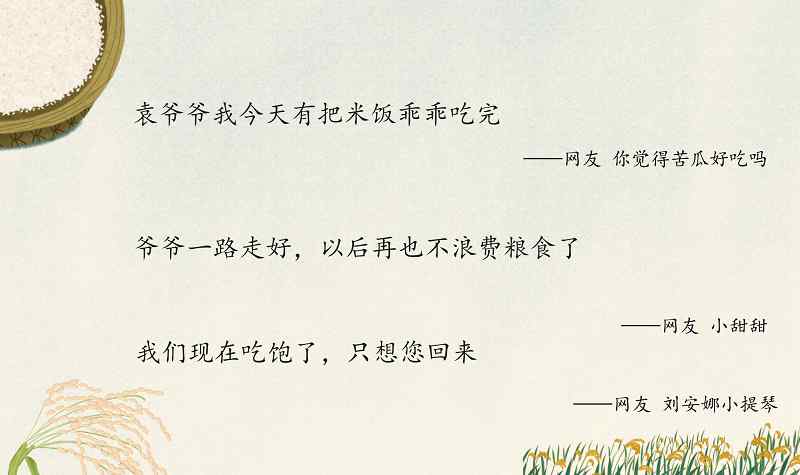 袁爷爷我今天有把米饭乖乖吃完
——网友 你觉得苦瓜好吃吗
爷爷一路走好，以后再也不浪费粮食了
——网友 小甜甜
我们现在吃饱了，只想您回来
——网友 刘安娜小提琴